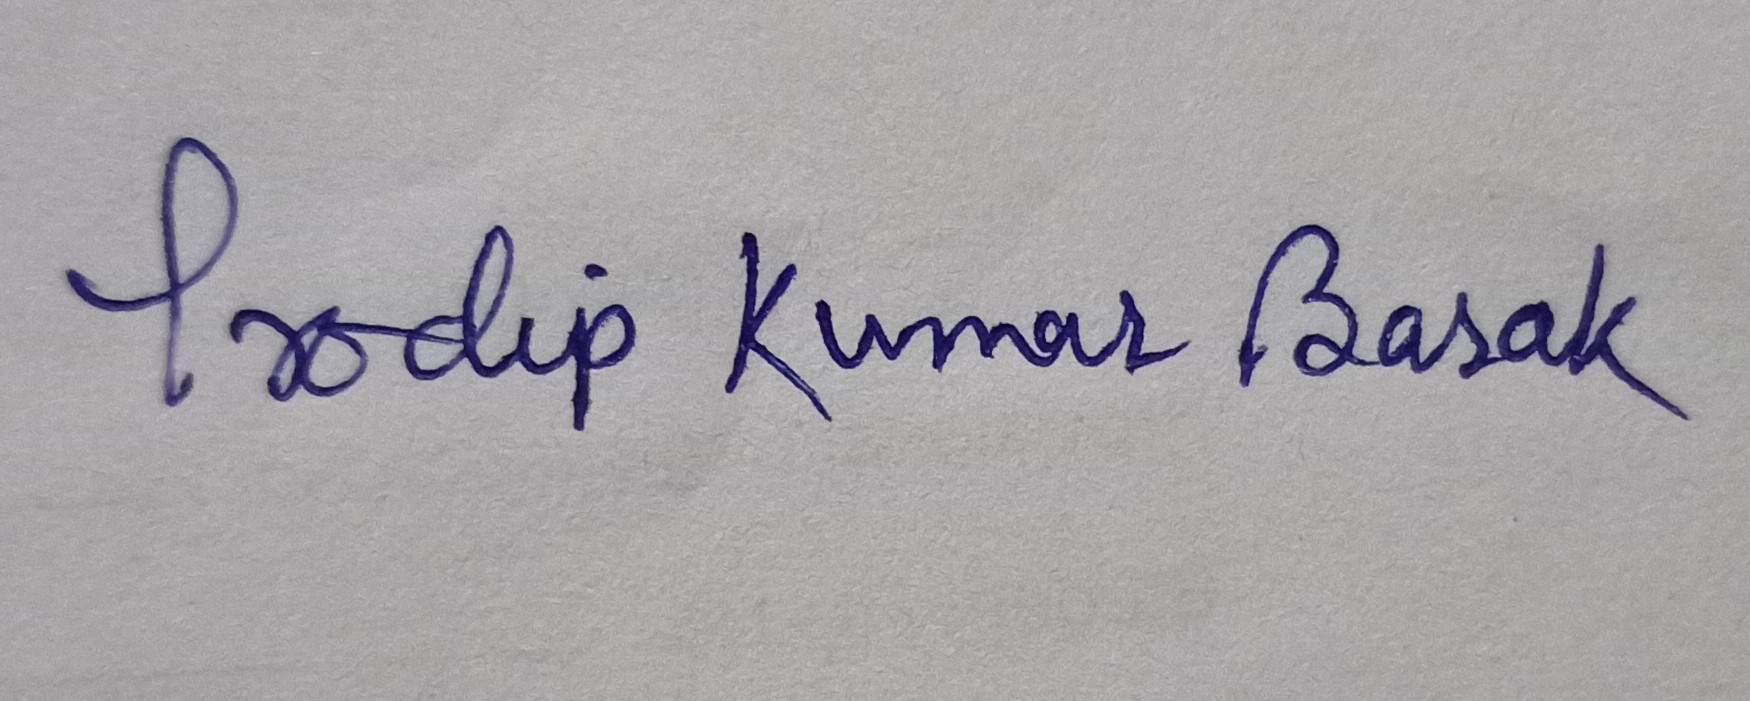 Prodip Kumar Basak